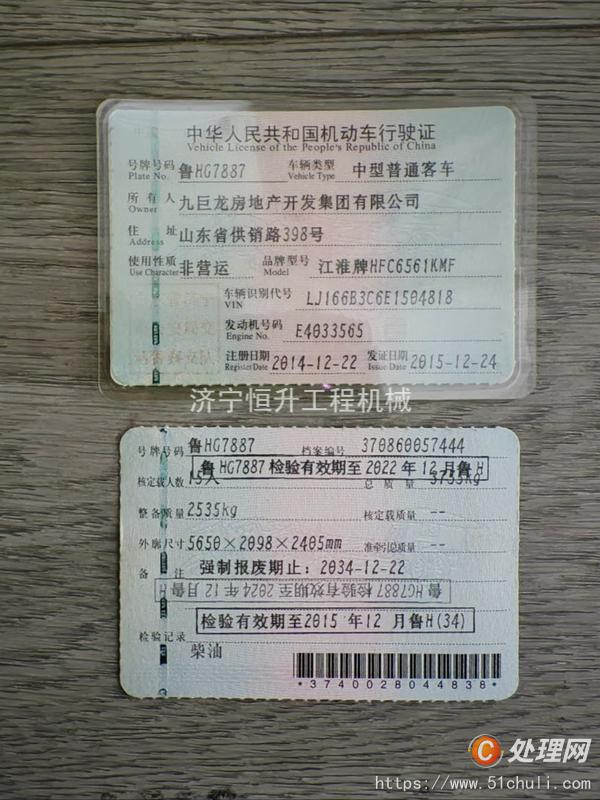 中华人民共和国机动车行驶证
Vehicle License of the People's Republic of China
号牌号码 鲁HG7887 车辆类型 中型普通客车
Plate No. Vehicle Type
所有人 九巨龙房地产开发集团有限公司
Owner
住址 山东省供销路398号
Address
使用性质 非营运 品牌型号 江淮牌HFC6561KMF
Use Character Model
车辆识别代号 LJ166B3C6E1504818
VIN
发动机号码 E4033565
Engine No.
注册日期 2014-12-22 发证日期 2015-12-24
Register Date Issue Date
济宁恒升工程机械
号牌号码 鲁HG7887 档案编号 370860057444
鲁HG7887 检验有效期至2022年12月鲁H
核定载人数 15人 总质量 3735kg
整备质量 2535kg 核定载质量 --
外廓尺寸 5650×2098×2405mm 准牵引总质量 --
备注 强制报废期止：2034-12-22
鲁HG7887 检验有效期至2024年12月鲁H
检验有效期至2015年12月鲁H(34)
检验记录
柴油
*3740028044838*
C处理网
https://www.51chuli.com